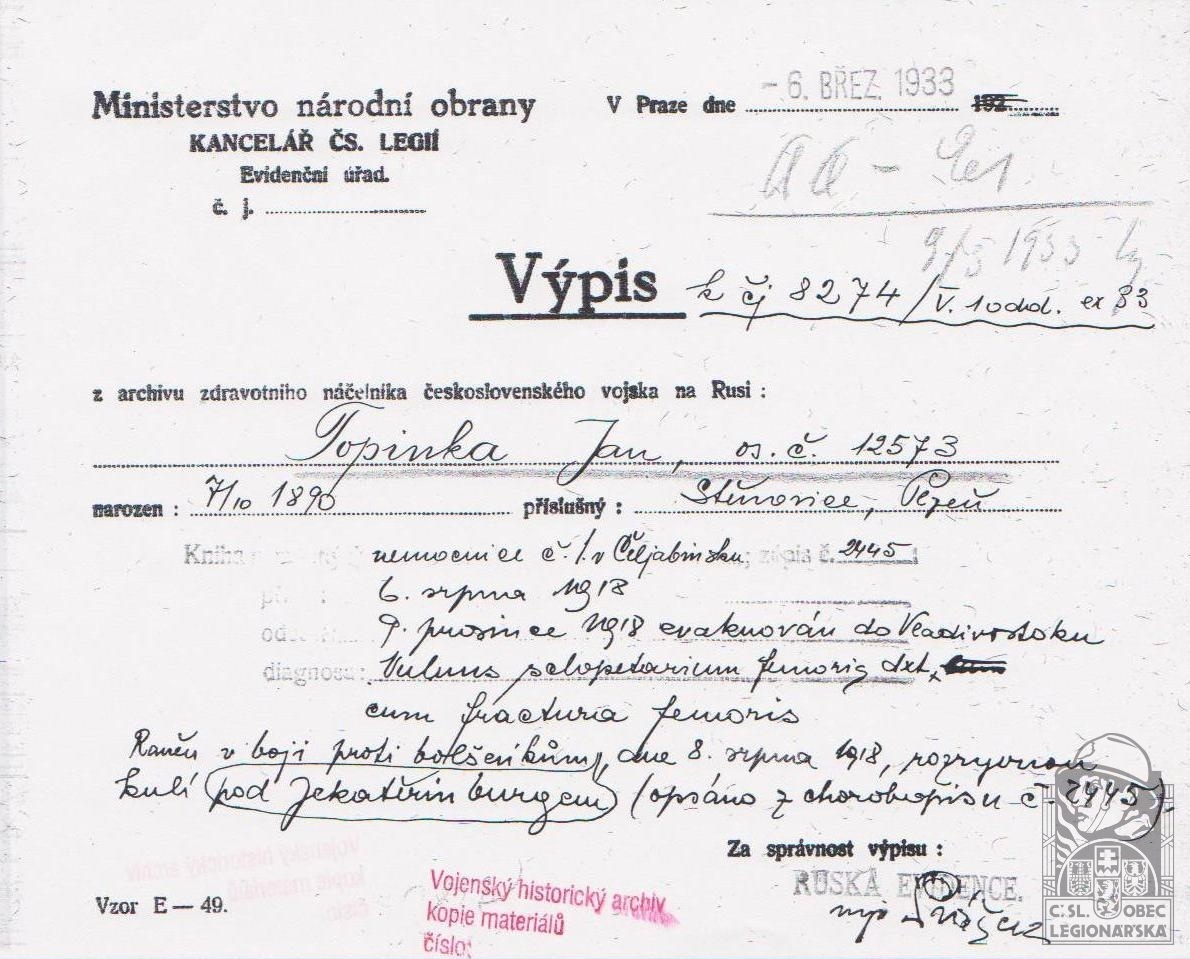 Ministerstvo národní obrany
KANCELÁŘ ČS. LEGIÍ
Evidenční úřad.
č. j.
V Praze dne - 6. BŘEZ. 1933 192
9/3 1933
Výpis k čj 8274/V. 1 odd. ex 33
z archivu zdravotního náčelníka československého vojska na Rusi :
Topinka Jan, os. č. 12573
narozen : 7/10 1890 příslušný : Stěnovice, Plzeň
Kniha nemocnice č. 1. v Čeljabinsku, zápis č. 2445 ;
6. srpna 1918
9. prosince 1918 evakuován do Vladivostoku
diagnosa: Vulnus sclopetarium femoris dxt.
cum fractura femoris
Raněn v boji proti bolševikům, dne 8. srpna 1918, rozryvnou
kulí pod Jekatěrinburgem (opsáno z chorobopisu č 2445).
Za správnost výpisu :
RUSKÁ EVIDENCE.
Vzor E — 49.
Vojenský historický archiv
kopie materiálů
číslo:
Č. SL. OBEC
LEGIONÁŘSKÁ